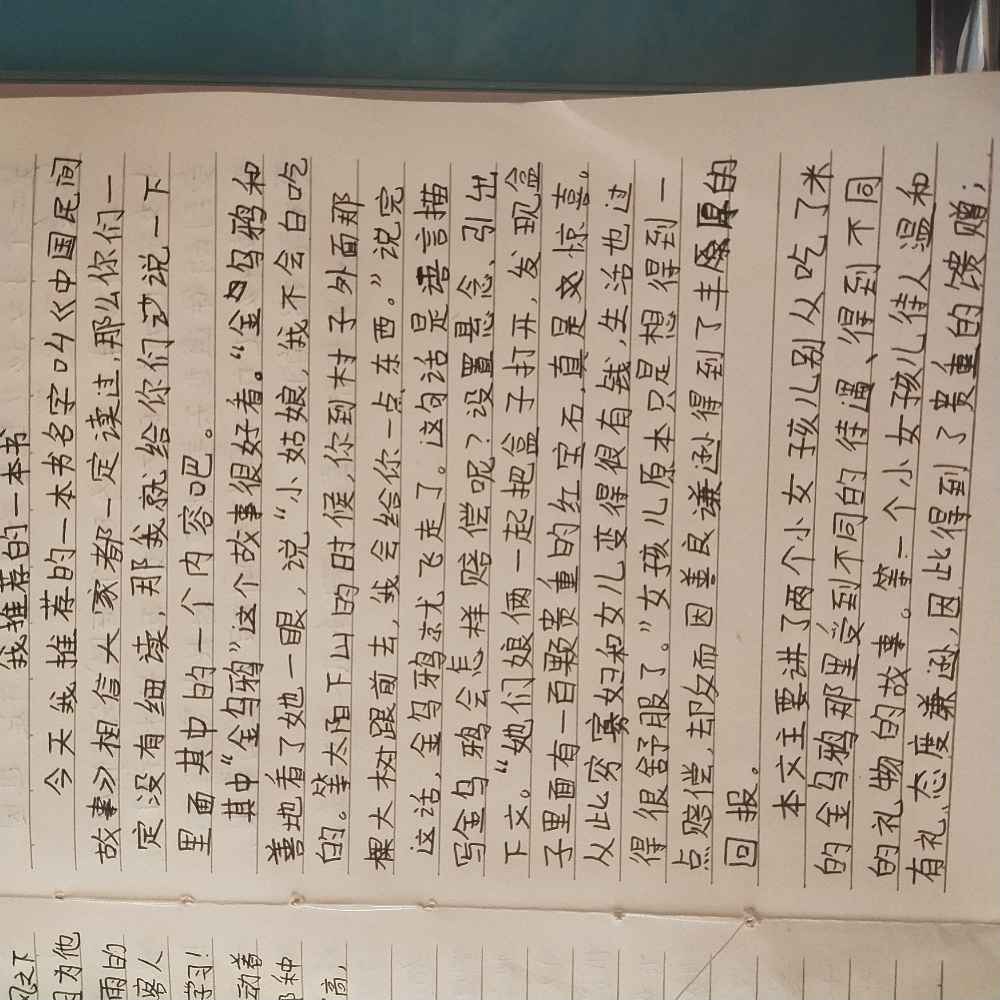 我推荐的一本书
今天我推荐的一本书名字叫《中国民间
故事》相信大家都一定读过，那么你们一
定没有细读，那我就给你们说一下
里面其中的一个内容吧。
其中“金乌鸦”这个故事很好看。“金乌鸦和
善地看了她一眼，说“小姑娘，我不会白吃
的。等太阳下山的时候，你到村子外面那
棵大树跟前去，我会给你一点东西。”说完
这话，金乌鸦就飞走了。这句话是语言描
写金乌鸦会怎样赔偿呢？设置悬念，引出
下文。“她们娘俩一起把盒子打开，发现盒
子里面有一百颗贵重的红宝石，真是又惊喜。
从此穷寡妇和女儿变得很有钱，生活也过
得很舒服了。”女孩儿原本只是想得到一
点赔偿，却反而因善良谦逊得到了丰厚的
回报。
本文主要讲了两个小女孩儿别从吃了米
的金乌鸦那里受到不同的待遇、得到不同
的礼物的故事。第一个小女孩儿待人温和
有礼、态度谦逊，因此得到了贵重的馈赠；
风之下
因为他
雨的
客人
学习！
动卷
那种
高，